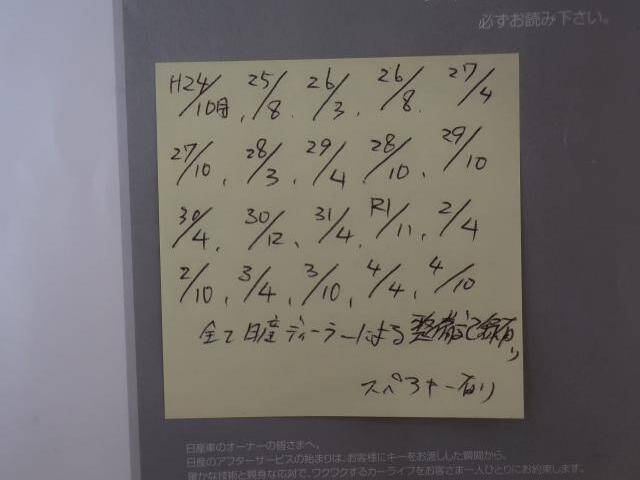 必ずお読み下さい。
H24/10月、25/8、26/3、26/8、27/4
27/10、28/3、29/4、28/10、29/10
30/4、30/12、31/4、R1/11、2/4
2/10、3/4、3/10、4/4、4/10
全て日産ディーラーによる整備記録有り
スペアキー有り
日産車のオーナーの皆さまへ。
日産のアフターサービスの始まりは、お客様にキーをお渡しした瞬間から。
確かな技術と親身な応対で、ワクワクするカーライフをお客さま一人ひとりにお約束します。